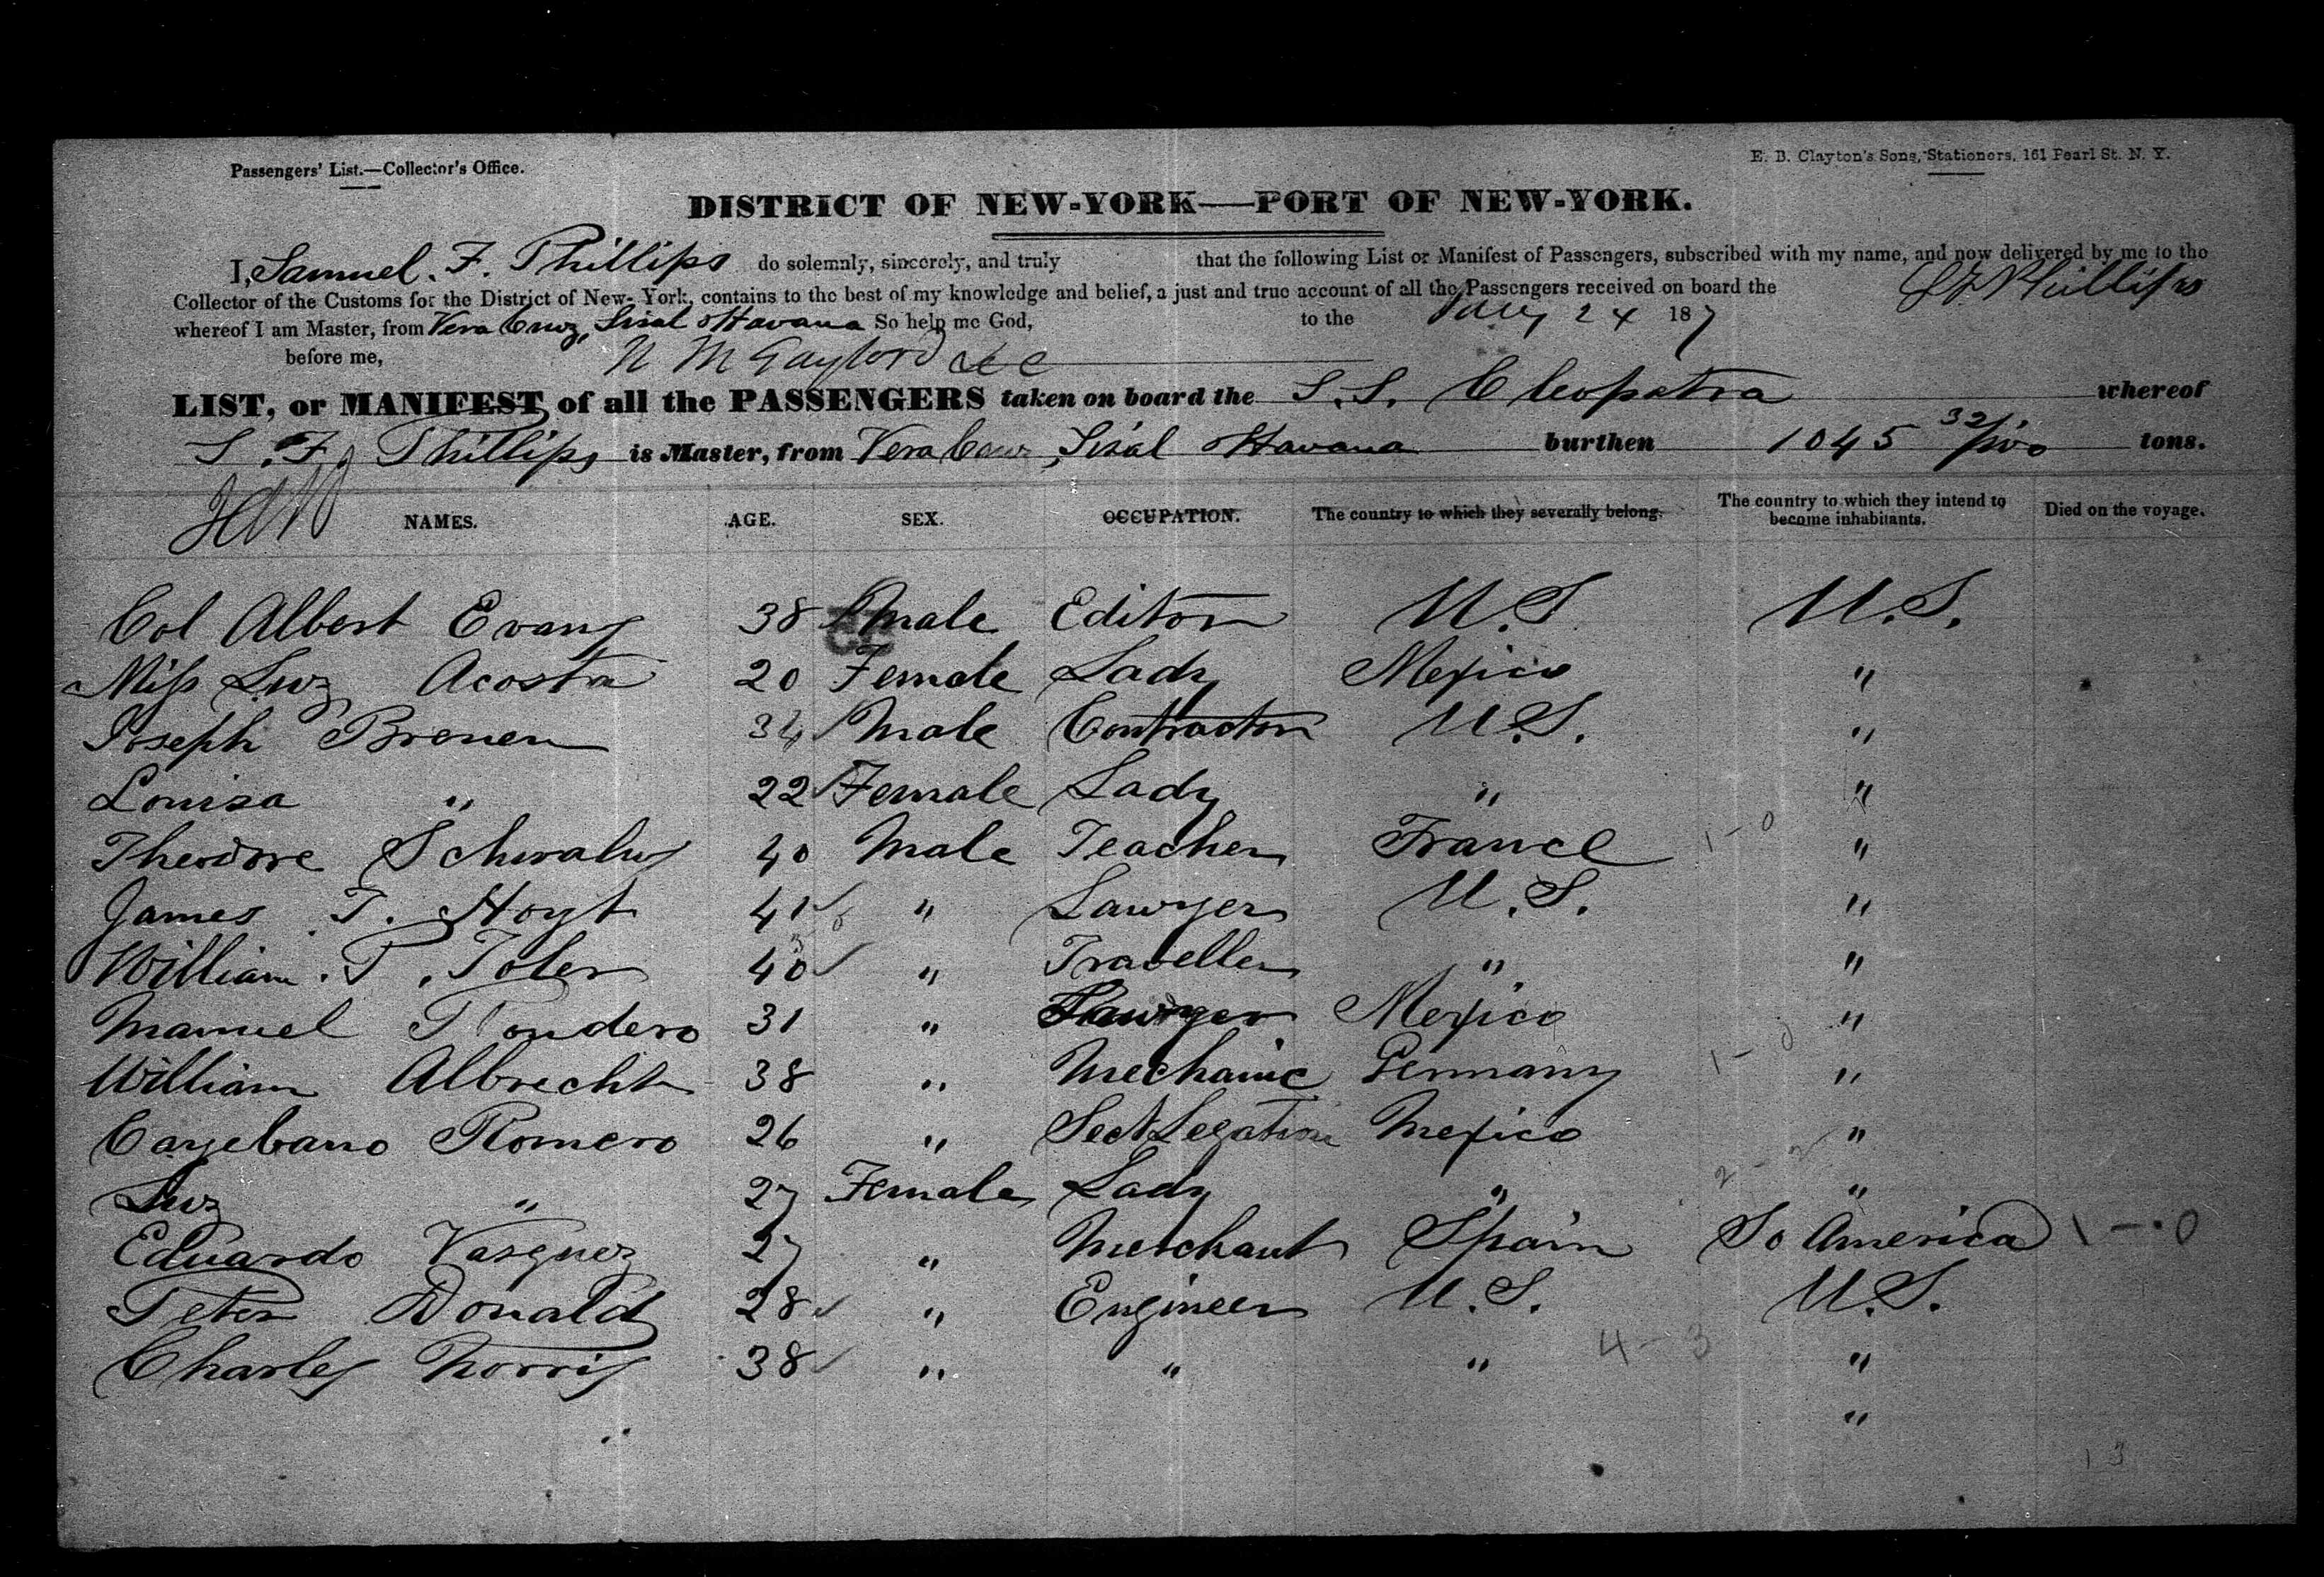 Passengers' List.—Collector's Office.
E. B. Clayton's Sons, Stationers, 161 Pearl St. N. Y.
DISTRICT OF NEW-YORK—PORT OF NEW-YORK.
I, Samuel. F. Phillips do solemnly, sincerely, and truly that the following List or Manifest of Passengers, subscribed with my name, and now delivered by me to the
Collector of the Customs for the District of New-York, contains to the best of my knowledge and belief, a just and true account of all the Passengers received on board the
whereof I am Master, from Vera Cruz, Sisal Havana So help me God, to the 24 187
S F Phillips
before me,
LIST, or MANIFEST, of all the PASSENGERS taken on board the S.S. Cleopatra whereof
S. F. Phillips is Master, from Vera Cruz, Sisal Havana burthen 1045 32/100 tons.
NAMES. AGE. SEX. OCCUPATION. The country to which they severally belong. The country to which they intend to become inhabitants. Died on the voyage.
Col Albert Evans 38 Male Editor U.S U.S.
Miss Luz Acosta 20 Female Lady Mexico "
Joseph Brenen 34 Male Contractor U.S. "
Louisa " 22 Female Lady " "
Theodore 40 Male Teacher France 1-0 "
James T. Hoyt 41 " Lawyer U.S. "
William. T. Toler 40 " Traveller " "
Manuel 31 " Lawyer Mexico "
William Albrecht 38 " Mechanic Germany 1-0 "
Cayebano Romero 26 " Sect Legation Mexico "
Luz " 27 Female Lady " 2-2 "
Eduardo Vasquez 27 " Merchant Spain So America 1-0
Peter Donald 28 " Engineer U.S. U.S.
Charles Norris 38 " " " 4-3 "
"
13